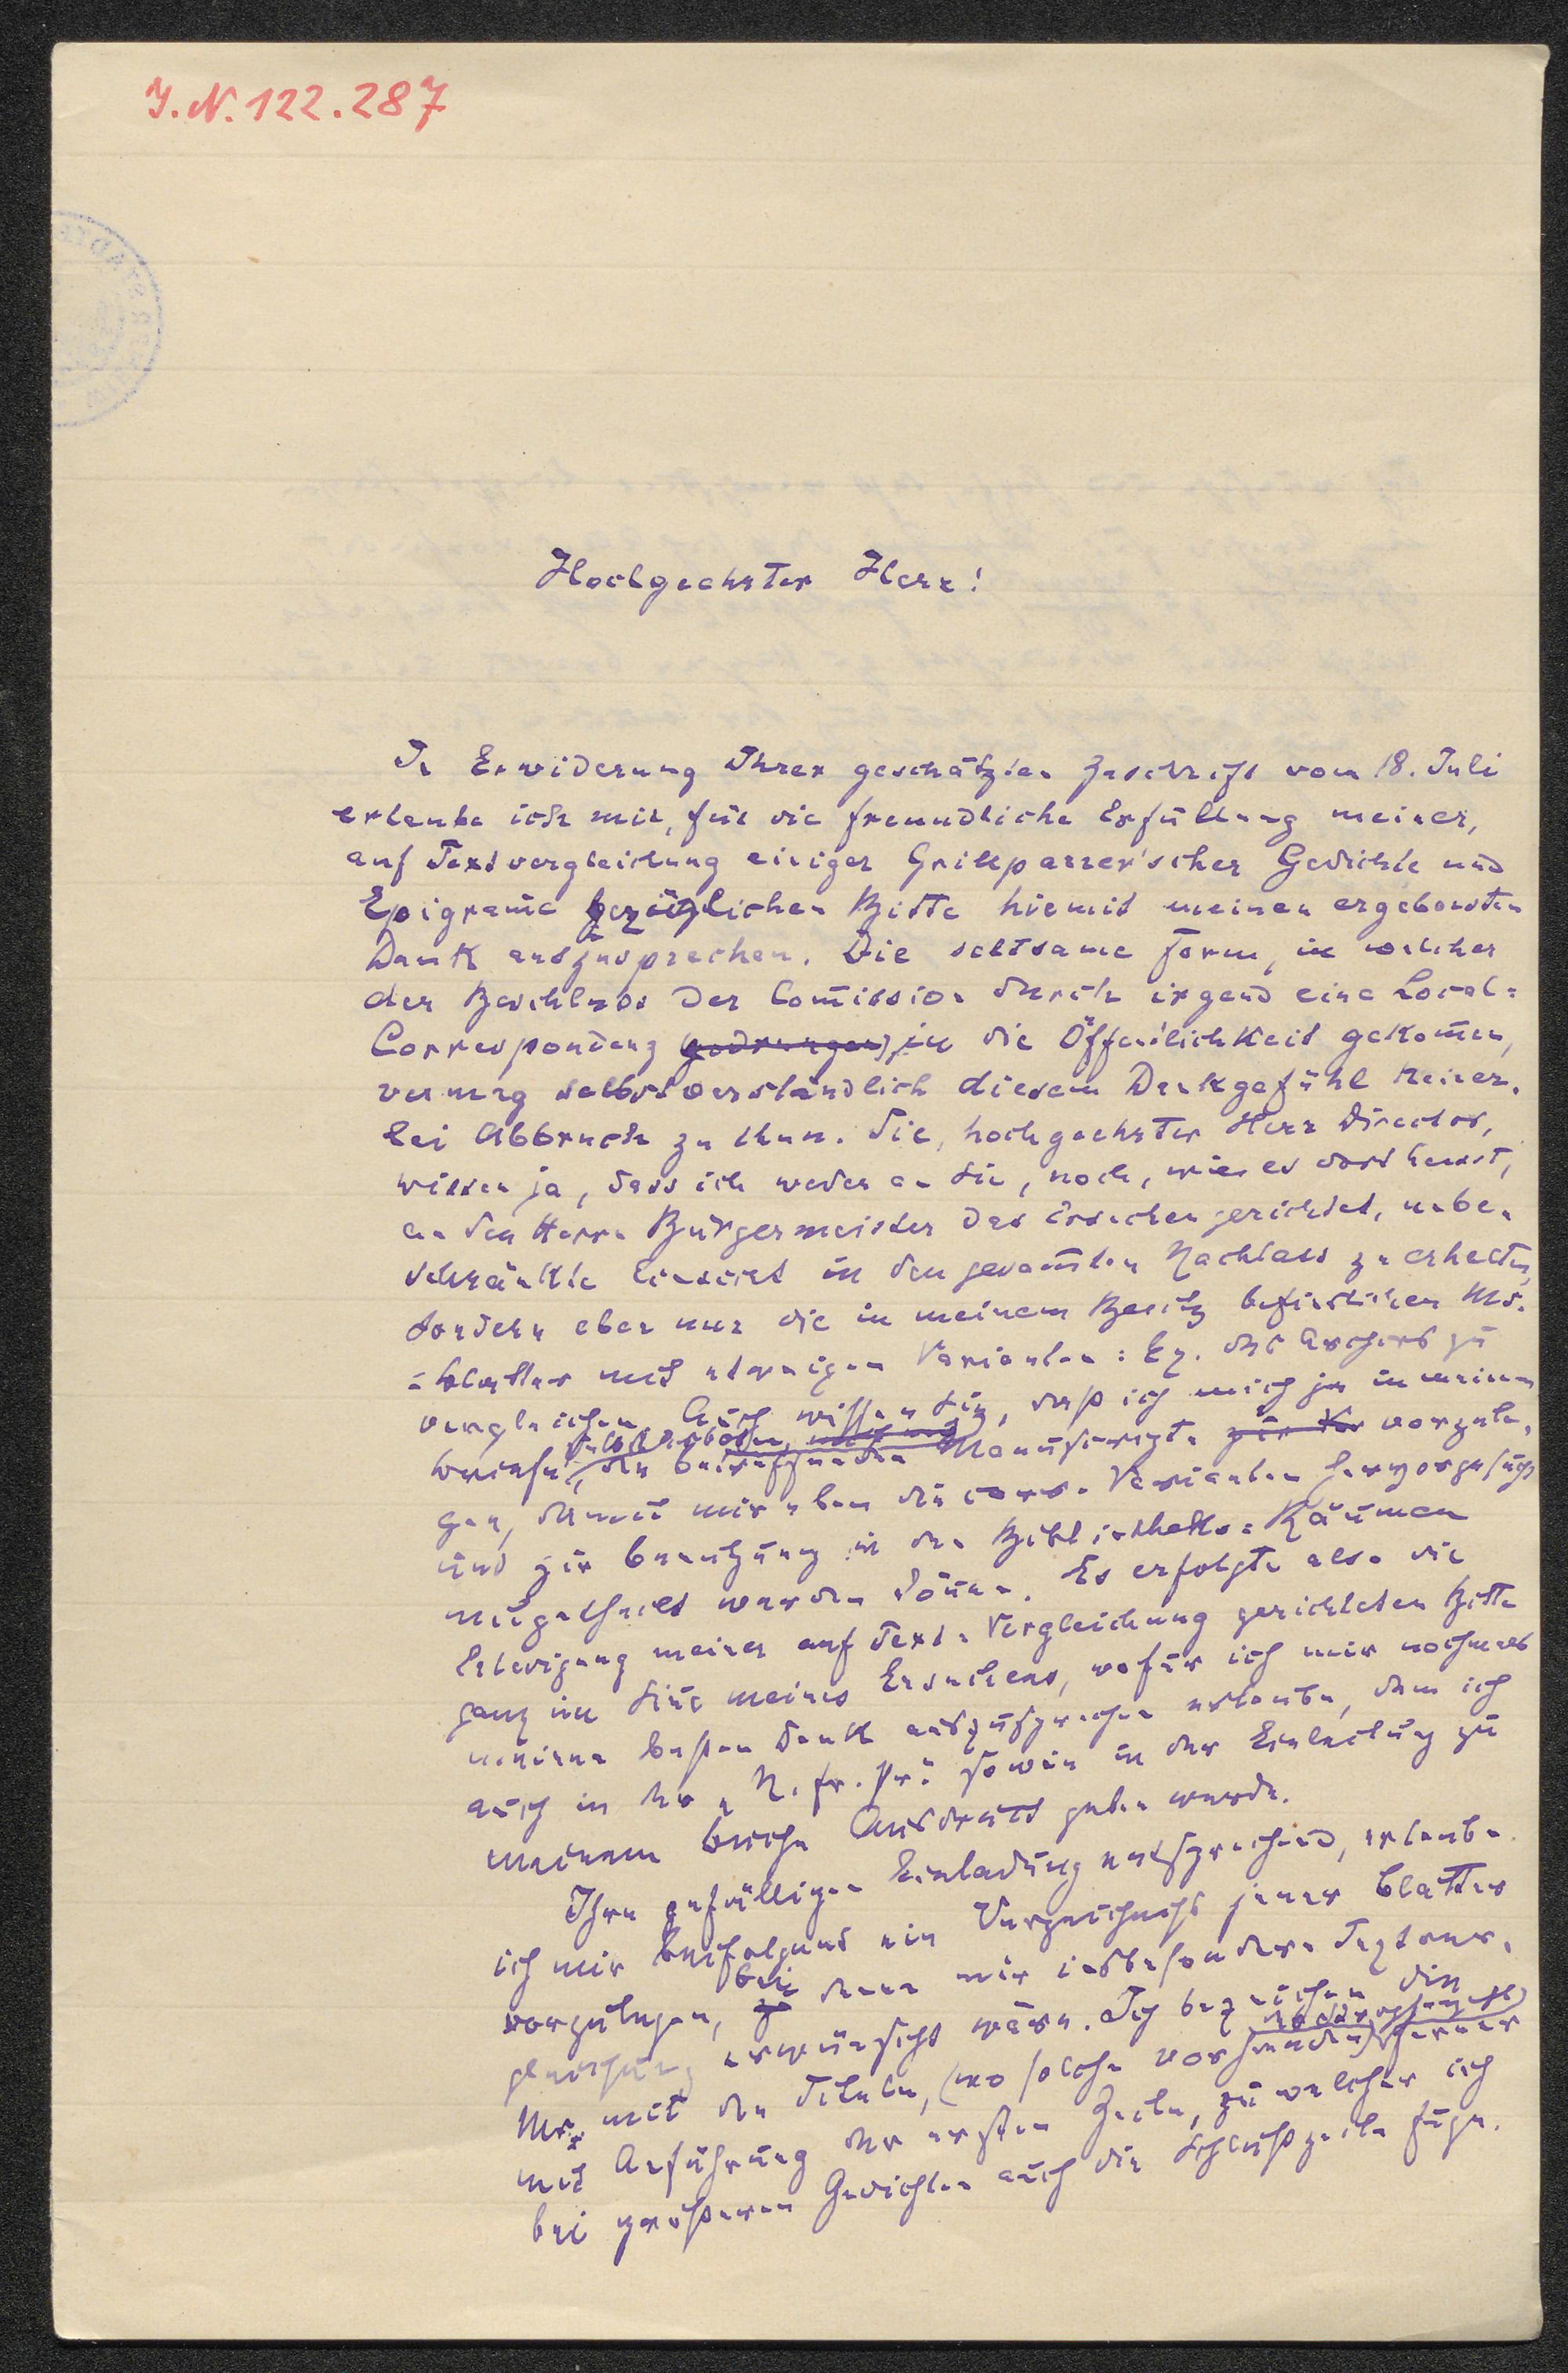 J. N. 122.287
Hochgeehrter Herr!
In Erwiderung Ihrer geschätzten Zuschrift vom 18. Juli
erlaube ich mir, für die freundliche Erfüllung meiner,
auf Textvergleichung einiger Grillparzer'scher Gedichte und
Epigrame bezüglichen Bitte hiemit meinen ergebensten
Dank auszusprechen. Die seltsame Form, in welcher
der Beschluss der Comission durch irgend eine Local=
Correspondenz (gedrungen) in die Öffentlichkeit gekomen,
vermag selbstverständlich diesem Dankgefühl keiner-
lei Abbruch zu thun. Sie, hochgeehrter Herr Director,
wissen ja, dass ich weder an Sie, noch, wie es dort heisst,
an den Herrn Bürgermeister das Ersuchen gerichtet, unbe-
schränkte Einsicht in den gesamten Nachlass zu erhalten,
sondern eben nur die in meinem Besitz befindlichen Ms.
=blätter mit etwaigen Varianten: Ex. des Archivs zu
vergleichen. Auch wissen Sie, daß ich mich ja in meinem
selbst erboten,
Briefe, die betreffenden Manuscripte vorzule-
gen, damit mir eben die Varianten hervorgesucht
und zur Benutzung in den Bibliotheks=Räumen
mitgetheilt werden könen. Es erfolgte also die
Erledigung meiner auf Text-Vergleichung gerichteten Bitte
ganz im Sine meines Ersuchens, wofür ich mir nochmals
meinen besten Dank auszusprechen erlaube, dem ich
auch in der „N. fr. Pr." sowie in der Einleitung zu
meinem Buche Ausdruck geben werde.
Ihrer gefälligen Einladung entsprechend, erlaube
ich mir beifolgend ein Verzeichniß jener Blätter
vorzulegen, bei denen mir insbesondere Textver-
gleichung erwünscht wäre. Ich bezeichne die
Ms. mit den Titeln, (wo solche vorhanden) ferner
mit Anführung der ersten Zeile, zu welcher ich
bei größeren Gedichten auch die Schlußzeile füge.